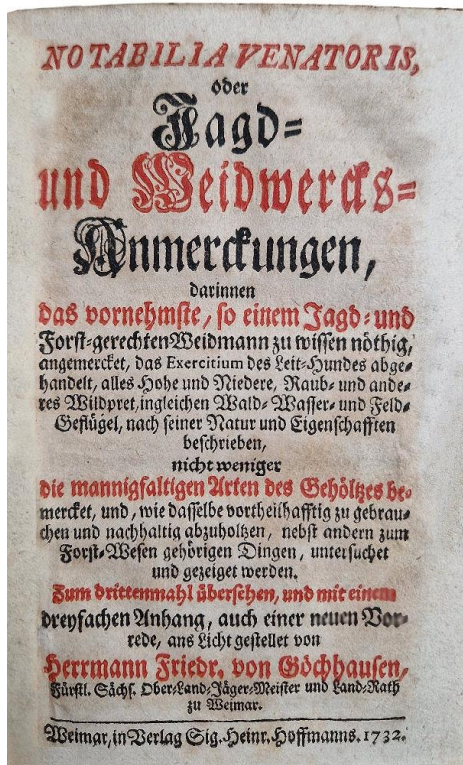 NOTABILIA VENATORIS,
oder
Jagd-
und Weidwercks-
Anmerckungen,
darinnen
das vornehmste, so einem Jagd- und
Forst-gerechten Weidmann zu wissen nöthig,
angemercket, das Exercitium des Leit-Hundes abge-
handelt, alles Hohe und Niedere, Raub- und ande-
res Wildpret, ingleichen Wald- Wasser- und Feld-
Geflügel, nach seiner Natur und Eigenschafften
beschrieben,
nicht weniger
die mannigfaltigen Arten des Gehöltzes be-
mercket, und, wie dasselbe vortheilhafftig zu gebrau-
chen und nachhaltig abzuholtzen, nebst andern zum
Forst-Wesen gehörigen Dingen, untersuchet
und gezeiget werden.
Zum drittenmahl übersehen, und mit einem
dreyfachen Anhang, auch einer neuen Vor-
rede, ans Licht gestellet von
Herrmann Friedr. von Göchhausen,
Fürstl. Sächs. Ober-Land-Jäger-Meister und Land-Rath
zu Weimar.
Weimar, in Verlag Sig. Heinr. Hoffmanns. 1732.